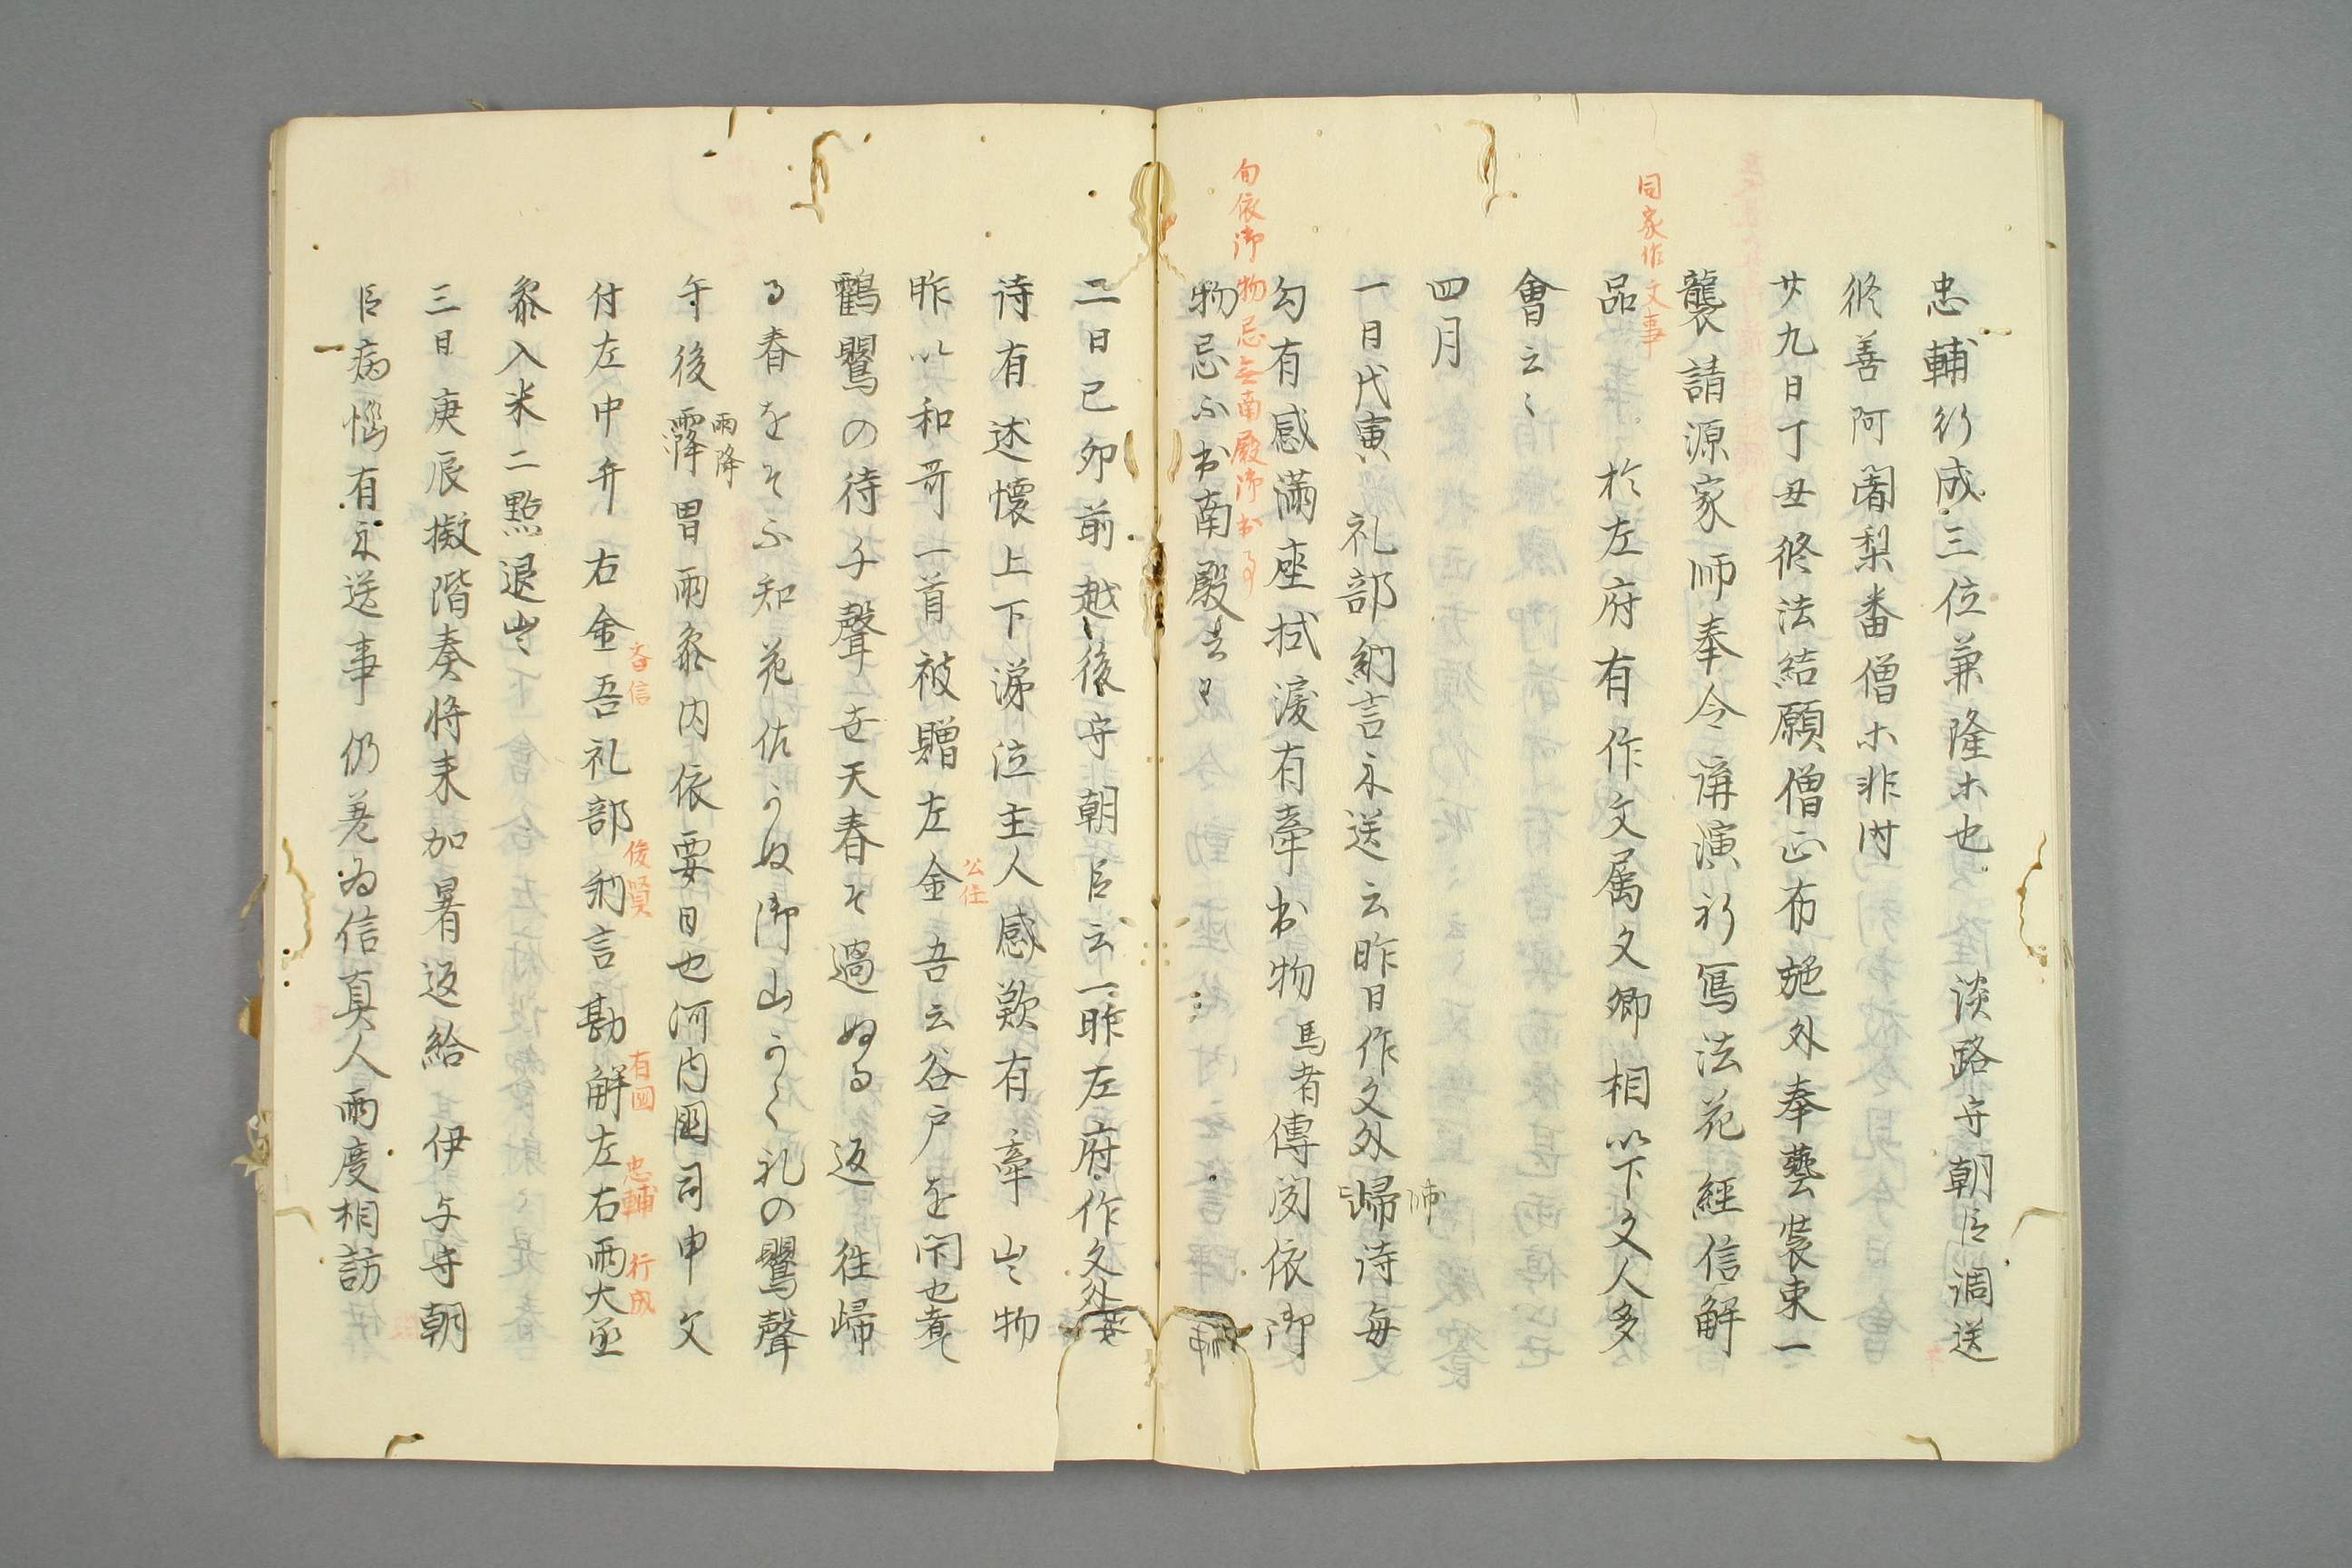 忠輔行成三位兼隆ホ也淡路守朝臣調送
修善阿闍梨番僧ホ非內
廿九日丁丑修法結願僧正布施外奉藝裝束一
襲請源家師奉令講演新寫法花經信解
同家作文事
品於左府有作文属文卿相以下文人多
會云〻
四月
一日戊寅礼部納言示送云昨日作文外帰詩每
帥
句有感滿座拭淚有牽出物馬者傳聞依御
旬依御物忌無南殿御出事
物忌不出南殿云〻
二日己卯前越後守朝臣云一昨左府作文外帥
詩有述懷上下涕泣主人感歎有牽出物
昨以和哥一首被贈左金吾云谷戶を閇也者
公任
鶴鸎の待チ聲せ天春そ過ぬる返徃歸
る春をそ不知花佐うぬ御山うくれの鸎聲
午後霖冒雨参內依要日也河內國司申文
雨降
付左中弁右金吾礼部納言勘解左右兩大丞
斉信
俊賢
有國
忠輔
行成
参入米二點退出
三日庚辰擬階奏將来加署返給伊与守朝
臣病惱有示送事仍差為信真人兩度相訪